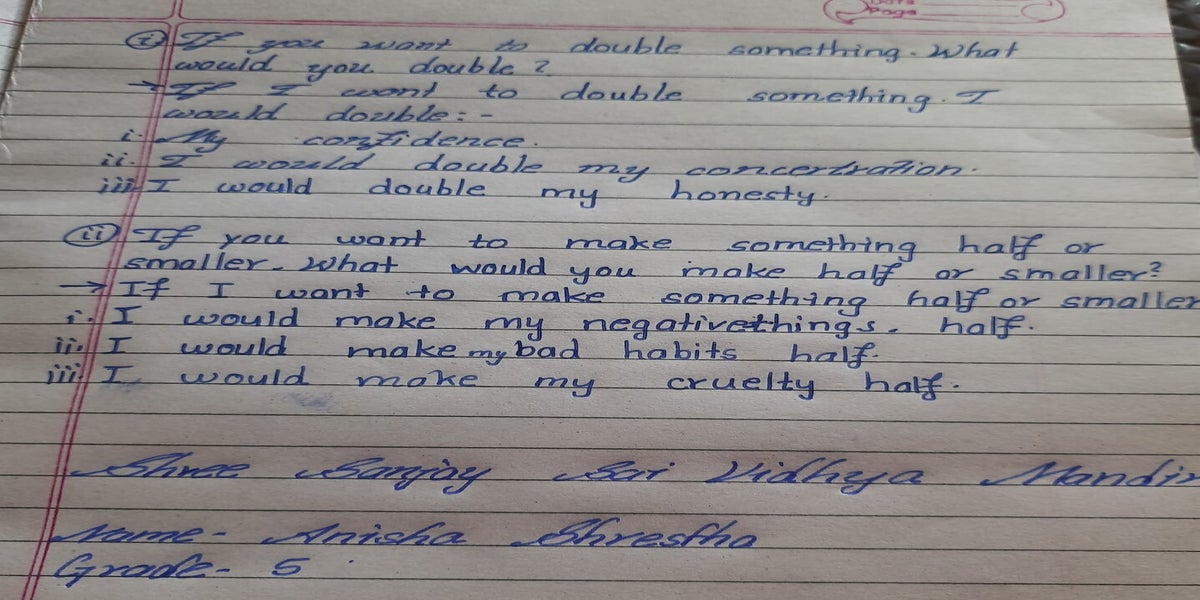 Date
Page
(i) If you want to double something. What
would you double?
→ If I want to double something. I
would double:-
i. My confidence.
ii. I would double my concertration.
iii. I would double my honesty.
(ii) If you want to make something half or
smaller. What would you make half or smaller?
→ If I want to make something half or smaller
i. I would make my negativethings. half.
ii. I would make my bad habits half.
iii. I would make my cruelty half.
Shree Sanjay Sai Vidhya Mandir
Name- Anisha Shrestha
Grade- 5